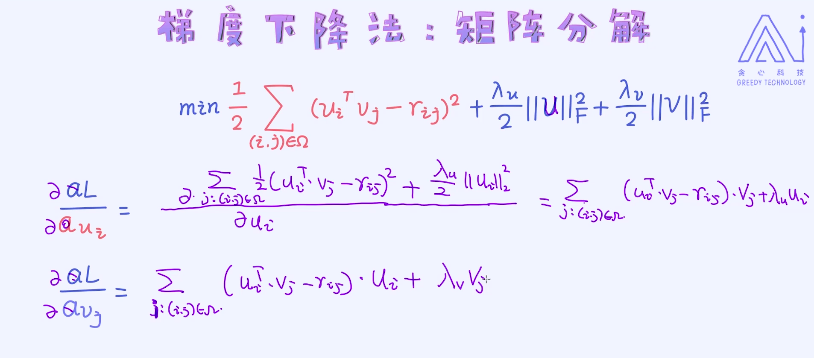 梯度下降法:矩阵分解
Ai
贪心科技
GREEDY TECHNOLOGY
min 1/2 ∑_{(i,j)∈Ω} (u_i^T v_j − r_{ij})^2 + λ_u/2 ||U||_F^2 + λ_v/2 ||V||_F^2
∂L/∂u_i = ∂ ∑_{j:(i,j)∈Ω} 1/2 (u_i^T · v_j − r_{ij})^2 + λ_u/2 ||u_i||_2^2 / ∂u_i = ∑_{j:(i,j)∈Ω} (u_i^T · v_j − r_{ij}) · v_j + λ_u u_i
∂L/∂v_j = ∑_{j:(i,j)∈Ω} (u_i^T · v_j − r_{ij}) · u_i + λ_v v_j